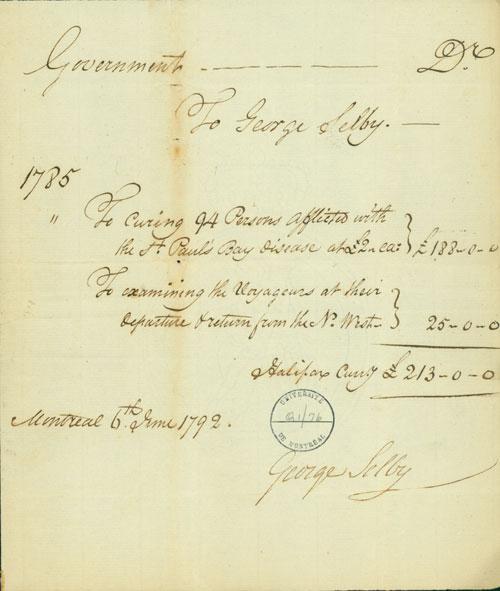 Government - - - - - Dr
To George Selby. -
1785
" To curing 94 Persons afflicted with
the St. Paul's Bay disease at £2 - ea: } £188-0-0
To examining the Voyageurs at their
departure & return from the No. West - } 25-0-0
Halifax Curry £ 213-0-0
Montreal 6th June 1792.
UNIVERSITÉ
DE MONTREAL
George Selby